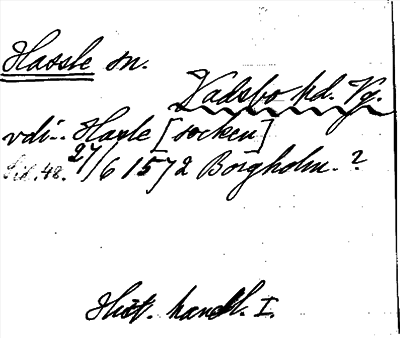 Hassle sn.
Vadsbo hd. Vg.
vdi.. Hasle [socken]
Sid. 48. 27/6 1572 Borgholm. ?
Hist. handl. I.